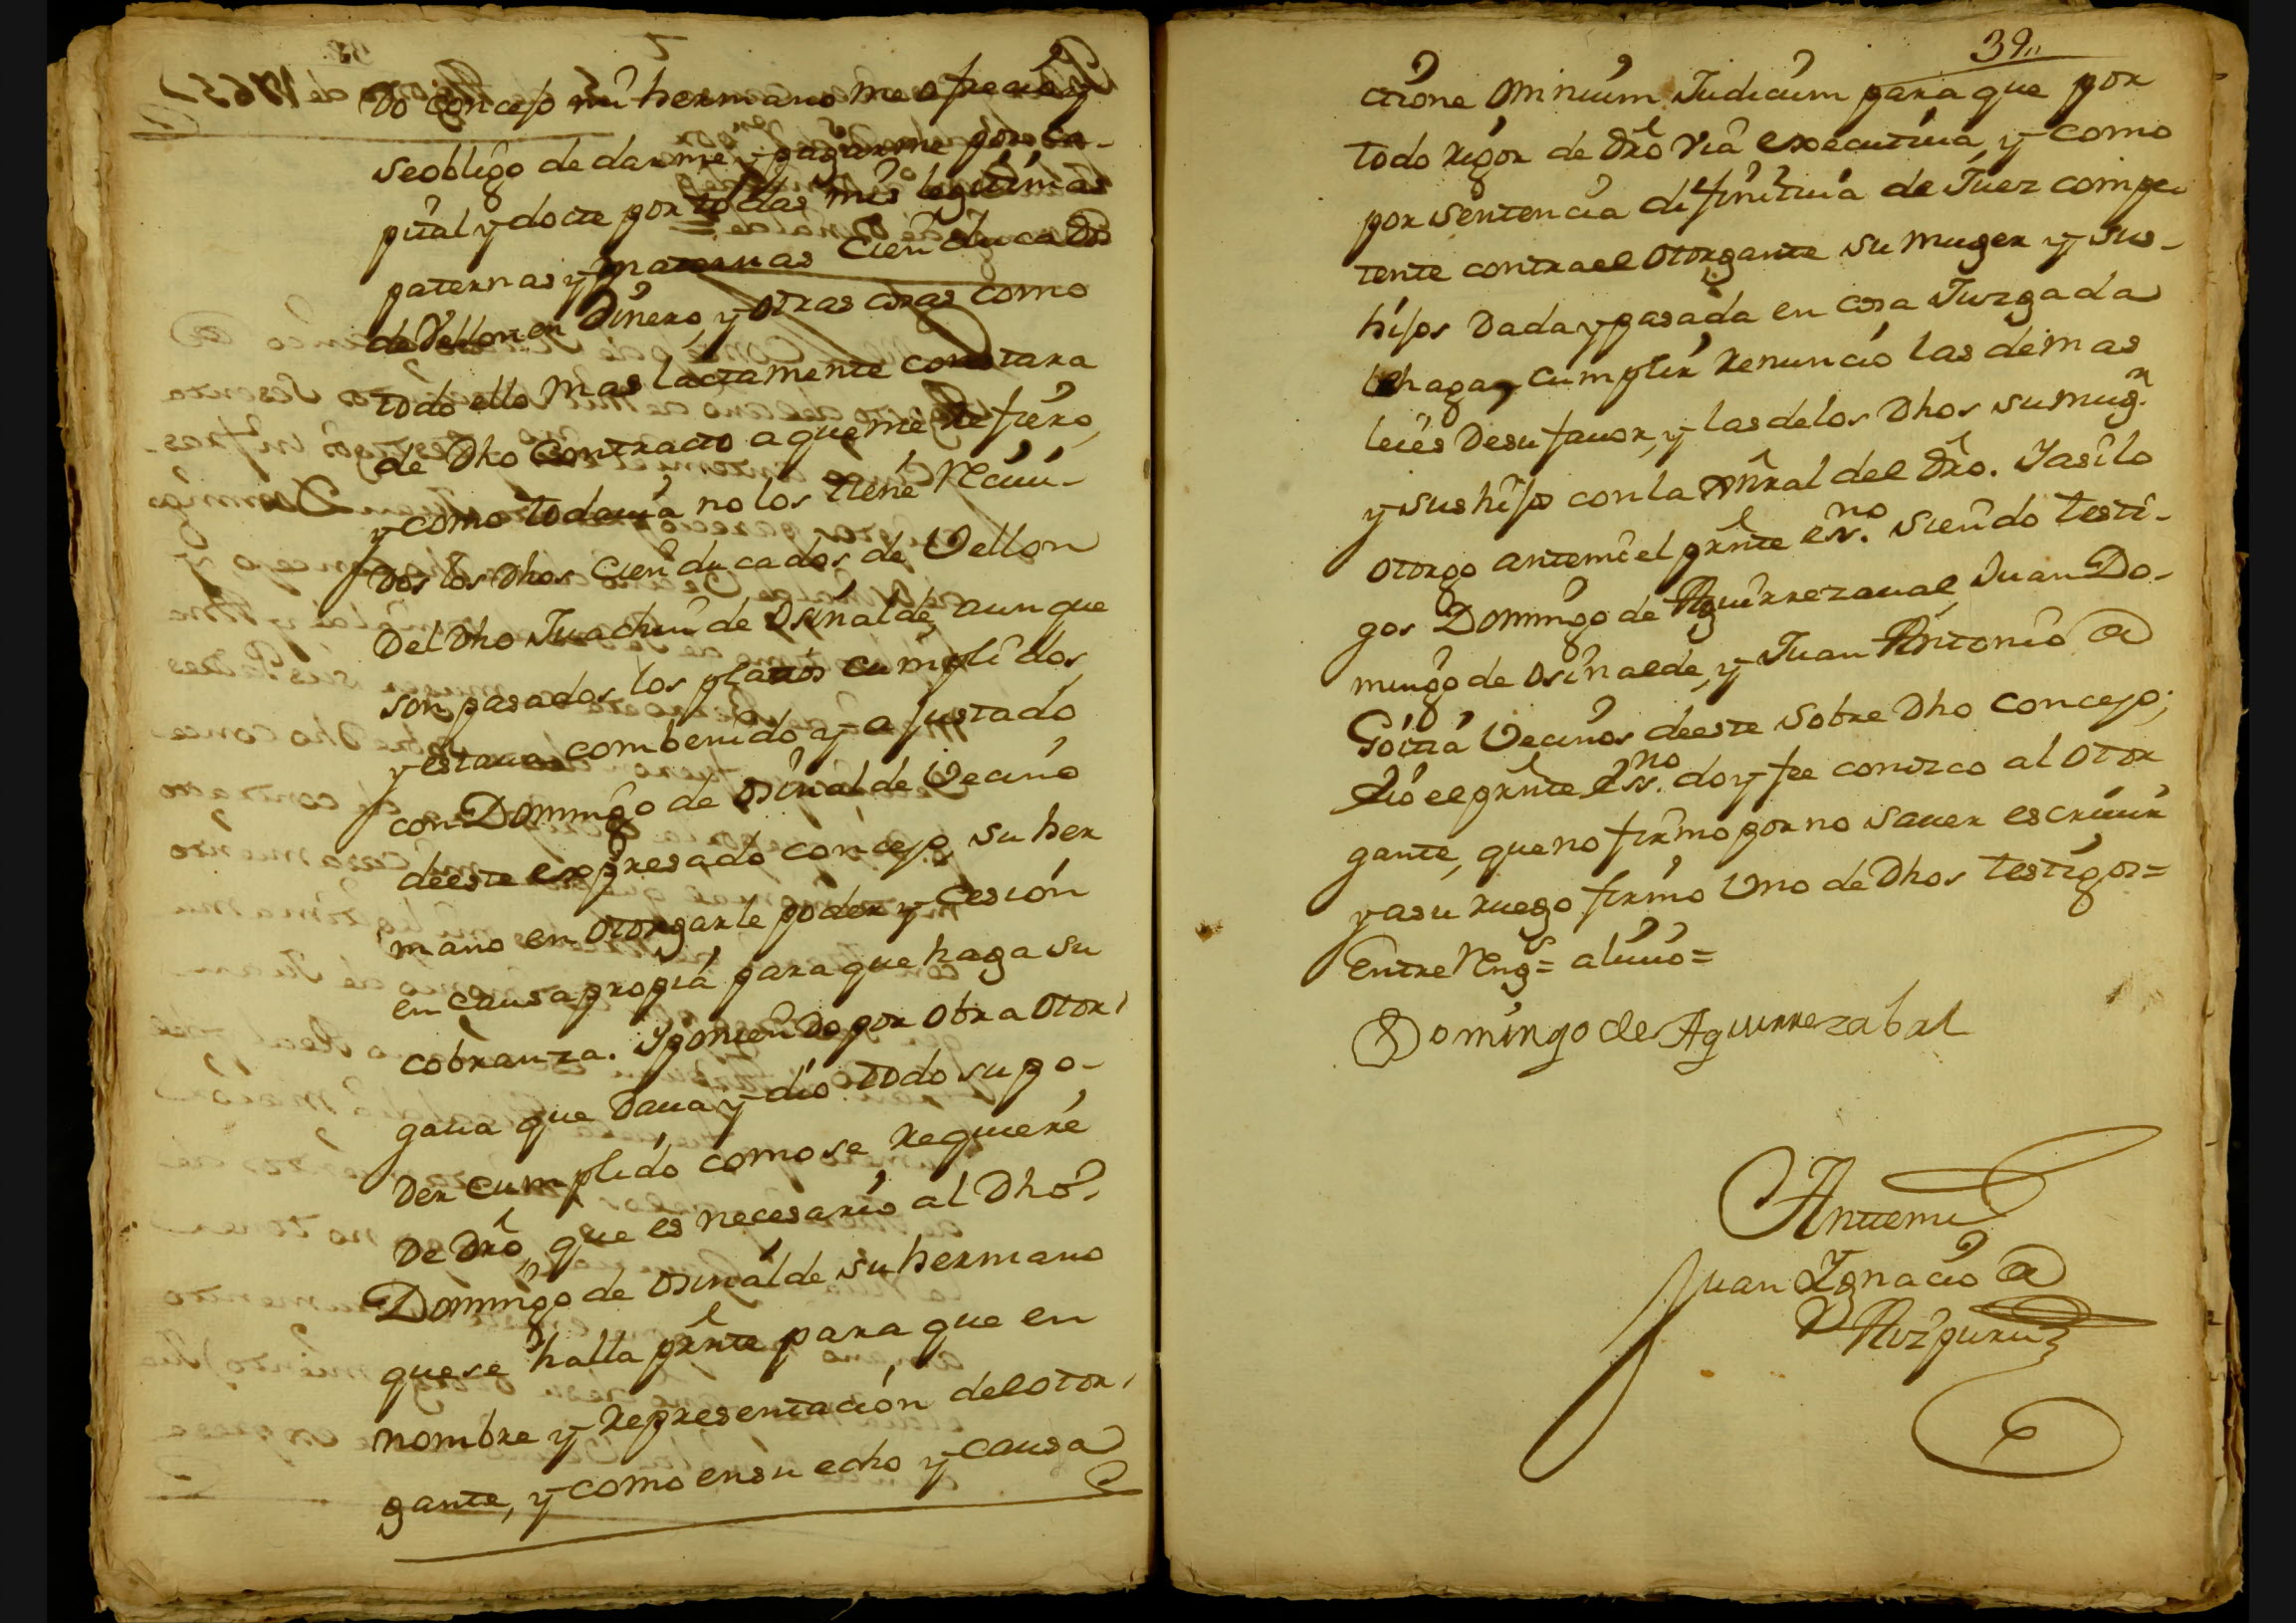 do concejo mi hermano me ofrecio y
se obligo de darme y pagarme por ca-
pital y docte por todas mis legitimas
paternas y maternas cien ducados
de Vellon en Dinero, y otras cosas como
todo ello mas lactamente constara
de Dho Contracto a que me refiero,
y como todauia no los tiene Reciui-
dos los Dhos Cien ducados de Vellon
Del Dho Juachin de Osinalde, aunque
son pasados los plazos cumplidos,
y estaua combenido y ajustado
con Domingo de Osinalde Vecino
deeste expresado concejo, su her
mano en otorgarle poder y Cesion
en causa propia para que haga su
cobranza. Y poniendo por obra otor,
gaua que Daua y dio todo su po-
der cumplido como se requiere
De dro, que es necesario al Dho
Domingo de Osinalde su hermano
que se halla prnte para que en
nombre y representacion del otor,
gante, y como en su echo y causa
39,,
ctione Omnium Judicum para que por
todo rigor de dro via executiua, y como
por sentencia difinitiua de Juez compe
tente contra el otorgante su muger y sus-
hijos Dada y pasada en cosa Juzgada
le haga cumplir renuncio las demas
leies Desu fauor, y las delos Dhos su mugr
y sus hijos con la Gnral del dro. Y asi lo
otorgo antemi el prnte esno. siendo testi-
gos Domingo de Aguirrezaual, Juan Do-
mingo de Osinalde, y Juan Antonio @
Goitia Vecinos deeste sobre Dho concejo;
Y io el prnte Esno. doy fee conozco al otor
gante, que no firmo por no sauer escriuir
y asu ruego firmo Uno de Dhos testigos=
Entre Rengs= aluio=
Domingo de Aguirrezabal
Antemi
Juan Ignacio @
Aizpuru